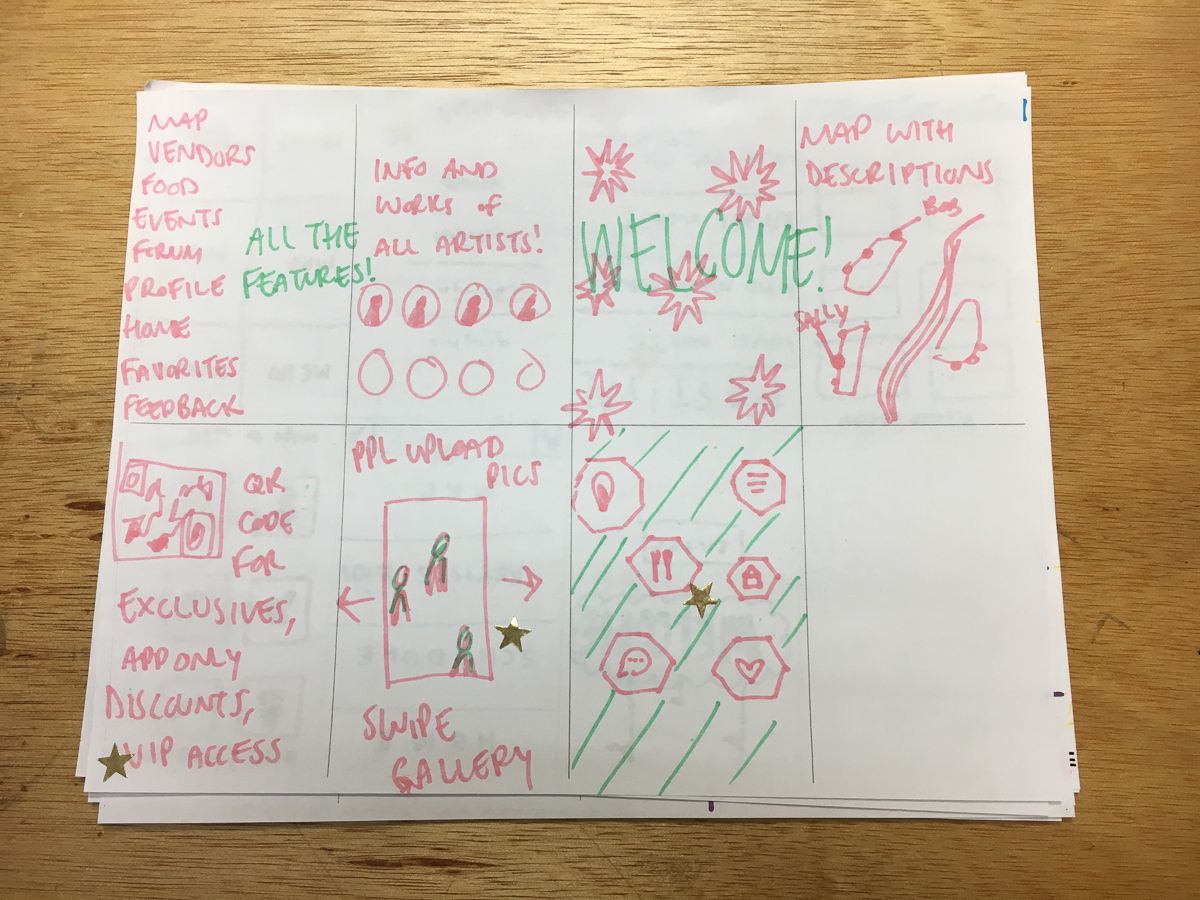 MAP
VENDORS
FOOD
EVENTS
FORUM
PROFILE
HOME
FAVORITES
FEEDBACK
ALL THE
FEATURES!
INFO AND
WORKS of
ALL ARTISTS!
WELCOME!
MAP WITH
DESCRIPTIONS
BOB
SALLY
QR
CODE
FOR
EXCLUSIVES,
APP ONLY
DISCOUNTS,
VIP ACCESS
PPL UPLOAD
PICS
SWIPE
GALLERY